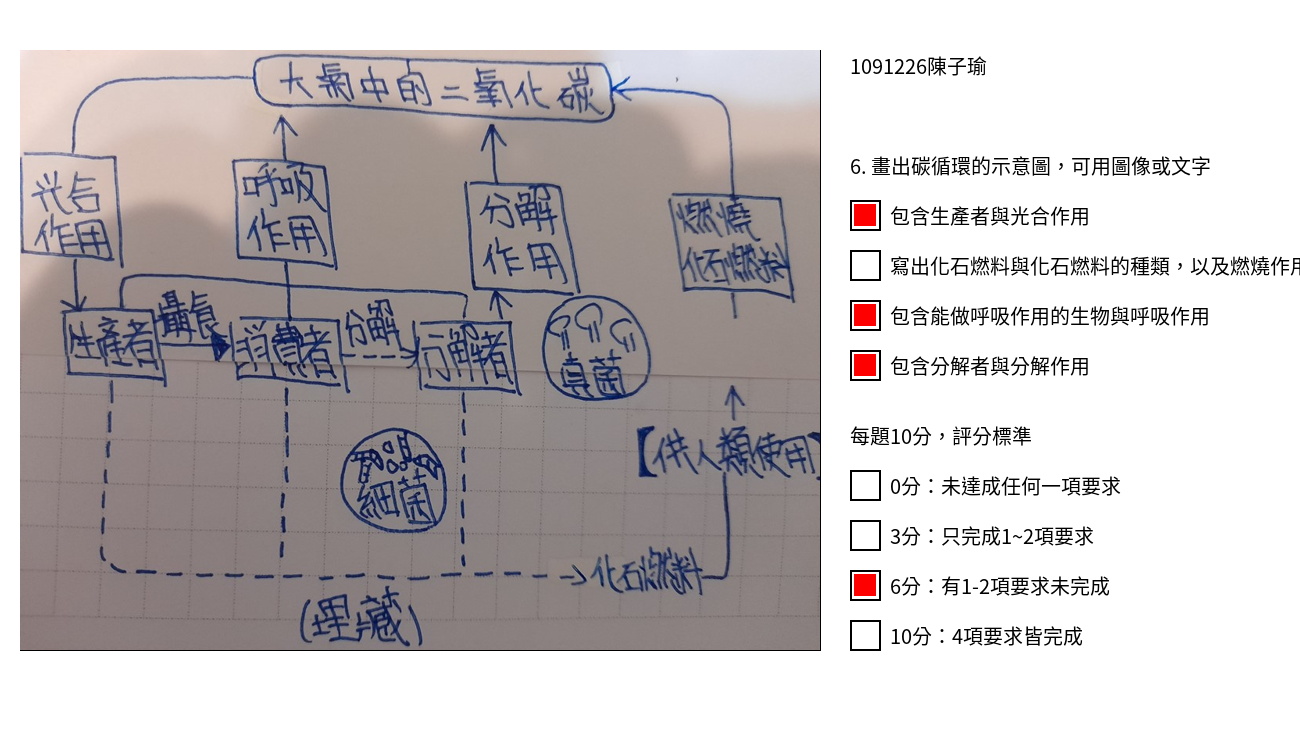 大氣中的二氧化碳
光合
作用
呼吸
作用
分解
作用
燃燒
化石燃料
生產者
攝食
消費者
分解
分解者
真菌
細菌
【供人類使用】
化石燃料
(埋藏)
1091226陳子瑜
6. 畫出碳循環的示意圖，可用圖像或文字
包含生產者與光合作用
寫出化石燃料與化石燃料的種類，以及燃燒作用
包含能做呼吸作用的生物與呼吸作用
包含分解者與分解作用
每題10分，評分標準
0分：未達成任何一項要求
3分：只完成1~2項要求
6分：有1-2項要求未完成
10分：4項要求皆完成